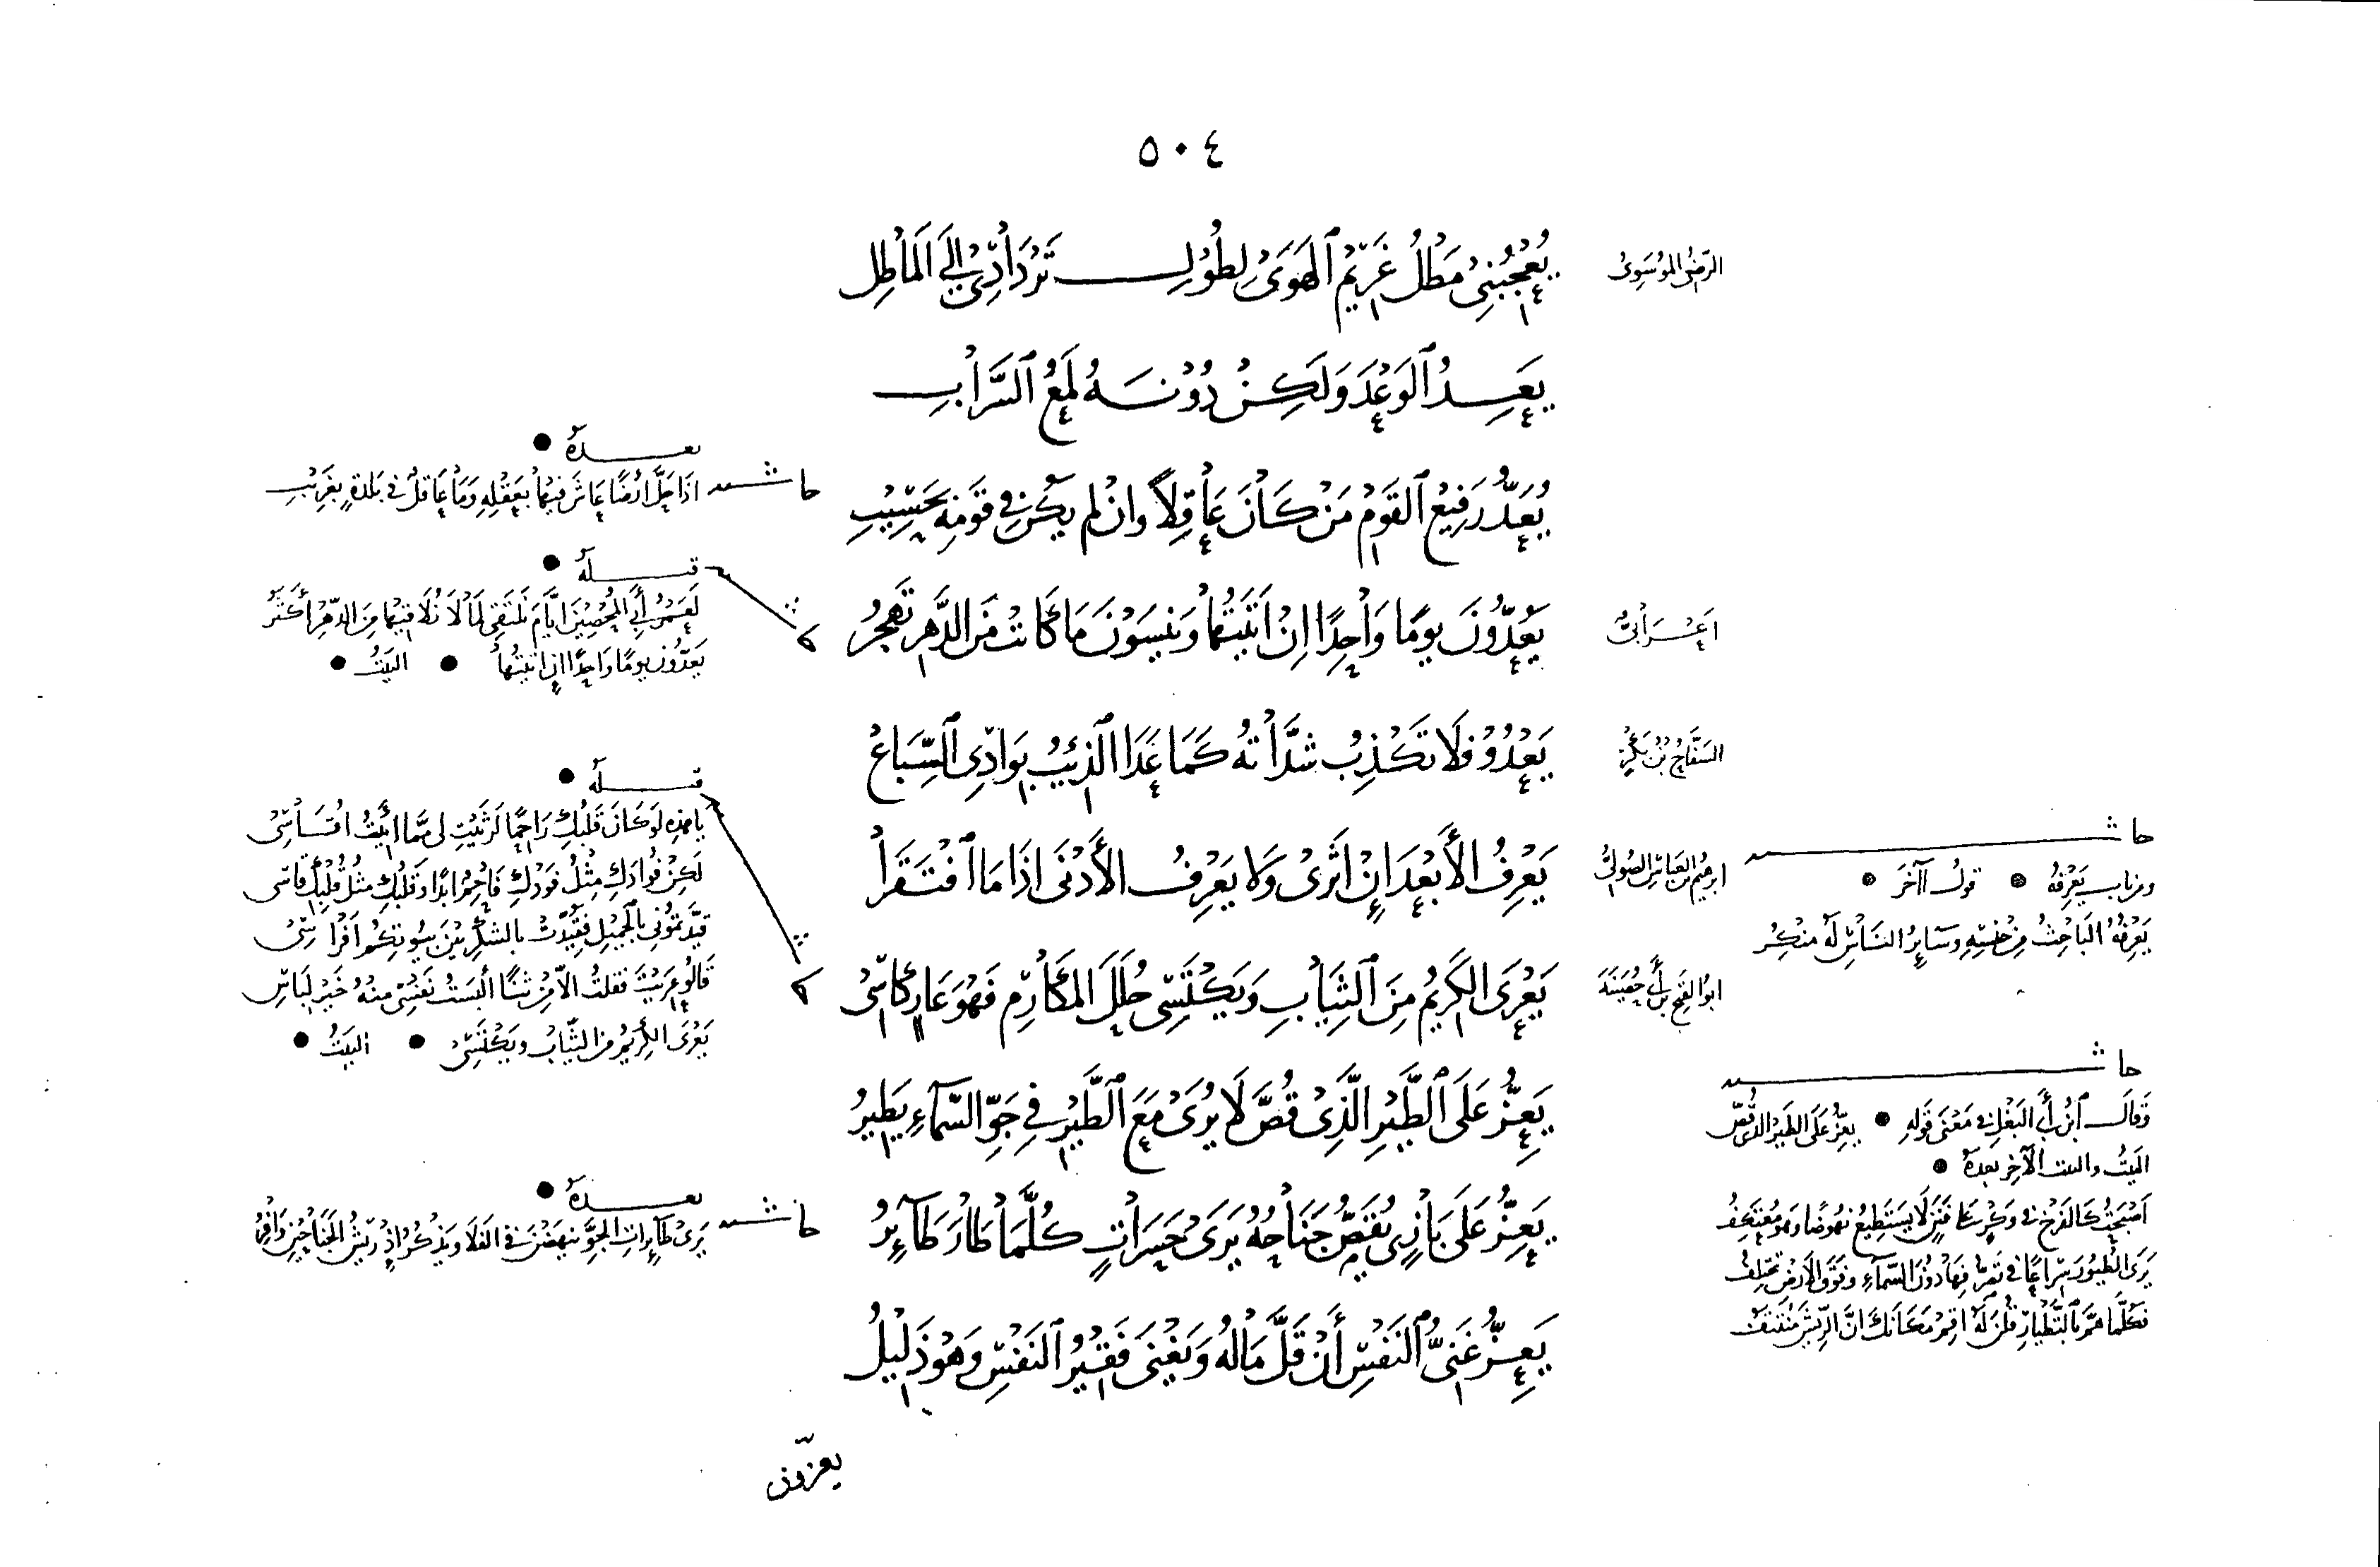 ٥٠٤
الرضى الموسوى
يُعْجِبُنِى مَطْلُ غَرِيْمِ الهَوَى لِطُوْلِ تَرْدَادِى إِلَى المَاطِلِ
يَعِدُ الوَعْدَ وَلَكِنْ دُوْنَهُ لَمْعُ السَّرَابِ
يُعَدُّ رَفِيْعَ القَوْمِ مَنْ كَانَ عَاقِلاً وَانْ لم يَكُنْ فِى قَوْمِهِ بحَسِيْبِ
حاشية
بعده
اذَا حَلَّ ارْضًا عَاشَ فيهَا بعَقْلِهِ وَمَا عَاقلٌ فى بَلدةٍ بغَرِيْبِ
اعرابىّ
يَعُدُّوْنَ يومًا وَاحِدًا انْ اتَيْتُهَا وَيَنْسَوْنَ مَا كَانَتْ مَنَ الدَّهرِ تَهْجُرُ
قبله
لَعَمْرُ أَبِى المُحْصِيْنَ ايَّامَ نَلْتَقِى لَمَا لَا نُلَاقِيْهَا مِنَ الدَّهْرِ أَكْثَرُ
يَعدُّوْنَ يومًا وَاحِدًا ان اتيتُهَا البَيْتُ
السَفَّاحُ بْنُ بُكَيْرٍ
يَعْدُوْ فَلَا تَكْذِبُ شَدَّاتُهُ كَمَا عَدَا الذِئْبُ بِوَادِى السِّبَاعْ
ابرهيم بن العَبّاس الصُوْلِىُّ
يَعْرِفُ الأَبْعَدَ إِنْ اثَرَىْ وَلَا يَعْرِفُ الأَدْنَى اذَا مَا افْتَقَرَا
حاشية
ومن باب يَعْرِفُهُ قول آخَرَ
يَعْرِفُهُ البَاحِثُ مِنْ جنْسِهِ وسَايِرُ النَاسِ لَهُ منكِرُ
ابو الفتح بن أبى حُصَيْنَةَ
يَعْرَى الكَرِيْمُ مِنَ الثِيَابِ وَيَكْتَسِى حُلَلَ المَكَارِمِ فَهُوَ عَارٍ كَاسِىْ
قبله
يا هذِهِ لوكَانَ قَلبُكِ رَاحِمًا لَرَثَيْتِ لى ممَّا أبيتُ اقَاسِىْ
لَكِنْ فُوَادَكِ مِثْلُ فَوْدِكِ فَاحِمٌ ابدًا وَقَلبُكِ مثلُ قُلْبِكِ قاسى
قيَّدتمُونى بالجَمِيْلِ فقُيِّدَتْ بالشكْرِ بَيْنَ بيُوتِكُمْ افْرَاسِىْ
قَالُوا عَرِيْتَ فقلتُ الّا مِنْ ثنًا أَلْبَسْتُ نَفْسِى منهُ خَيْرَ لِبَاسِ
يَعْرَى الكَرِيْمُ من الثّيَابِ ويَكْتَسِىْ البَيْتُ
يَعِزُّ عَلَى الطَّيْرِ الَّذِىْ قُصَّ لَا يُرَىْ مَعَ الطَّيْرِ فِى جَوِّ السَّمَآءِ يَطِيرُ
حاشية
وَقالَ ابْنُ أَبى البَغْلِ فى مَعْنَى قَوْلِهِ يعِزُّ عَلَى الطَيْر الذى قُصّ
البَيتُ والبيت الآخر بَعدهُ
أَصْبَحْتُ كَالفَرْخ فى وَكْرٍ عَلَا فَنَنٍ لَا يَسْتَطِيعُ نهُوضًا وَهوَ مُعْتَكِفُ
يَرَى الطُيُورَ سِرَاعًا فى تَصَرُّفِهَا دُوْنَ السَّمَآءِ وَفَوْقَ الأرْضِ تَخْتلِفُ
فكلَّمَا هَمَّ بالتَّطْيَارِ قُلْنَ لَهُ اقِمْ مَكَانَكَ انَّ الرِّيْشَ مُنْتَتَفُ
يَعِزُّ عَلَى بَازِىْ يُقَصُّ جَنَاحُهُ يَرَى حَسَرَاتٍ كُلَّمَا طَارَ طَآيِرُ
حاشية
بعده
يَرَىْ طَآيرَاتِ الجَوِّ ينهَضْنَ فى الفَلَا وَيَذْكُرُ اذْ رِيْشُ الجَنَاحَيْنِ وَافِرُ
يَعِزُّ غَنِىُّ النَفْسِ أَنْ قَلَّ مَالُهُ وَيَغْنَى فَقِيْرُ النَفْسِ وَهُوْ ذَلِيْلُ
يعزّون